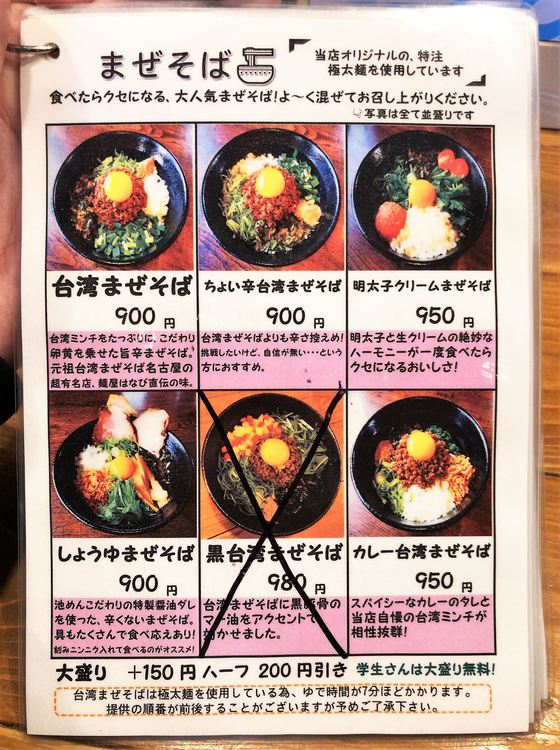 まぜそば
当店オリジナルの、特注
極太麺を使用しています
食べたらクセになる、大人気まぜそば!よ〜く混ぜてお召し上がりください。
写真は全て並盛りです
台湾まぜそば
900 円
台湾ミンチをたっぷりに、こだわり
卵黄を乗せた旨辛まぜそば。
元祖台湾まぜそば名古屋の
超有名店、麺屋はなび直伝の味。
ちょい辛台湾まぜそば
900 円
台湾まぜそばよりも辛さ控えめ!
挑戦したいけど、自信が無い･･･という
方におすすめ。
明太子クリームまぜそば
950 円
明太子と生クリームの絶妙な
ハーモニーが一度食べたら
クセになるおいしさ!
しょうゆまぜそば
900 円
池めんこだわりの特製醤油ダレ
を使った、辛くないまぜそば。
具もたくさんで食べ応えあり!
刻みニンニク入れて食べるのがオススメ!
黒台湾まぜそば
980 円
台湾まぜそばに黒豚骨の
マー油をアクセントで
効かせました。
カレー台湾まぜそば
950 円
スパイシーなカレーのタレと
当店自慢の台湾ミンチが
相性抜群!
大盛り +150円 ハーフ 200円引き 学生さんは大盛り無料!
台湾まぜそばは極太麺を使用している為、ゆで時間が7分ほどかかります。
提供の順番が前後することがございますが予めご了承下さい。